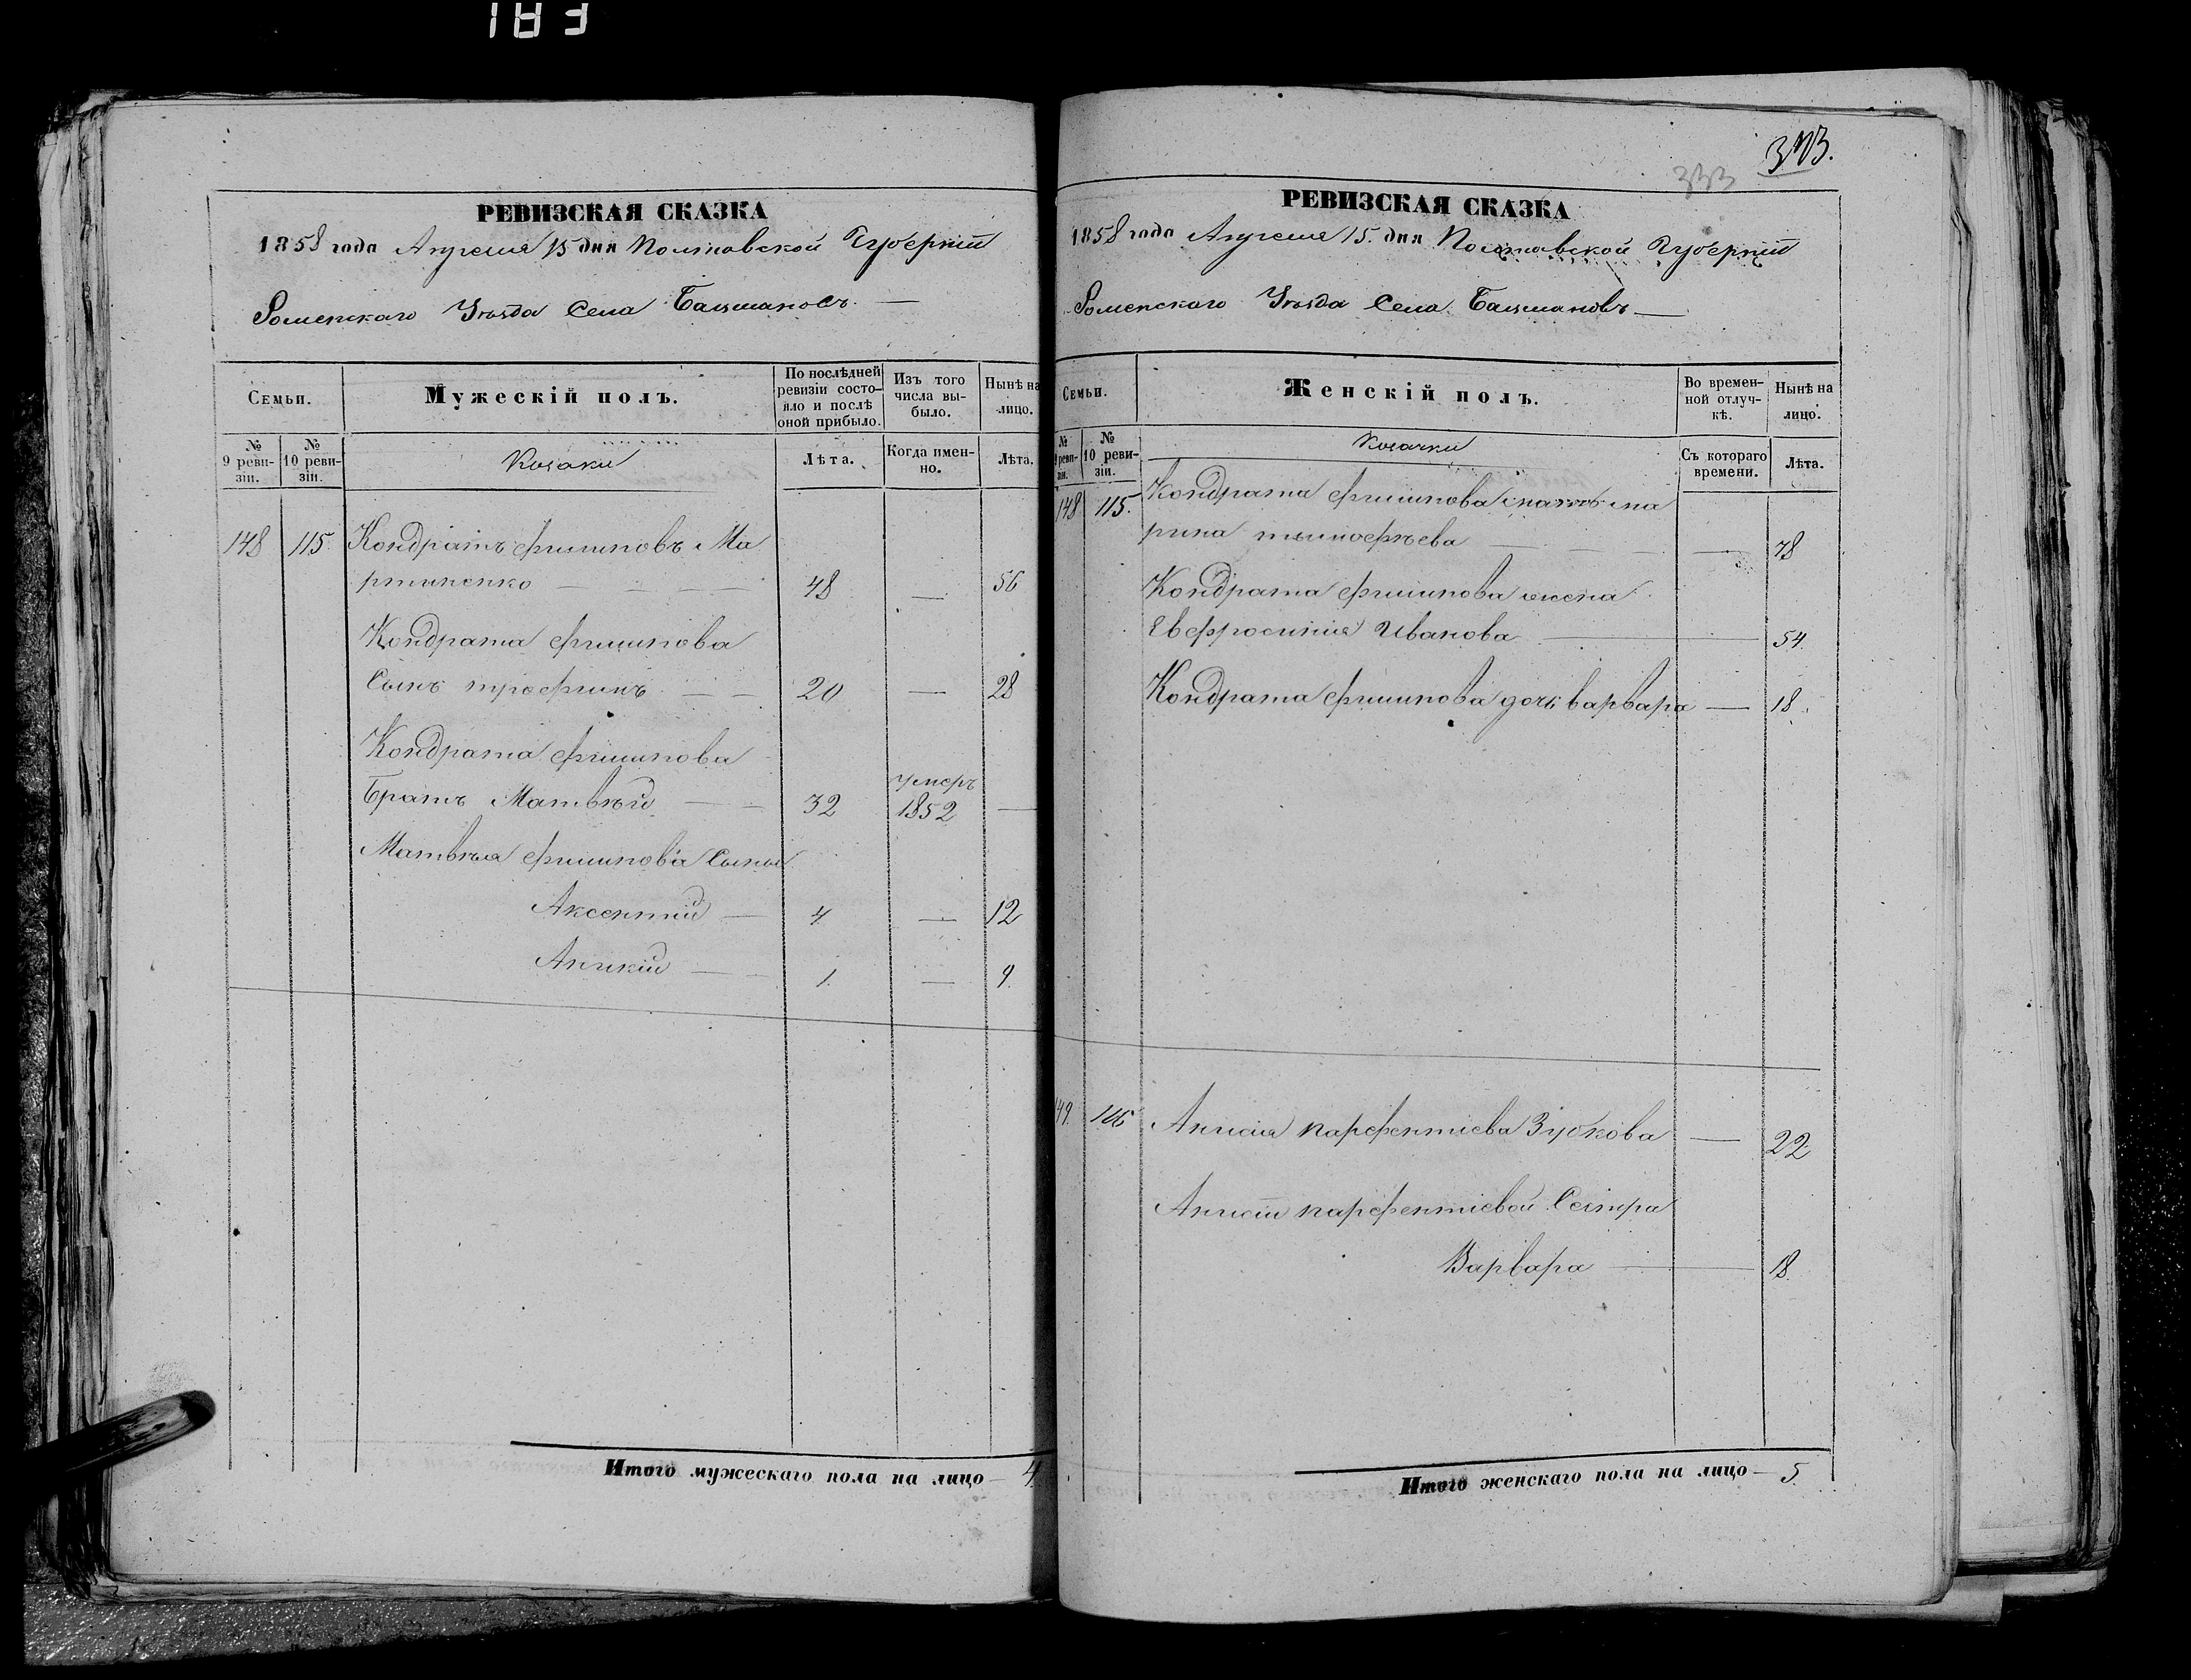 183
РЕВИЗСКАЯ СКАЗКА
1858 года Апреля 15 дня Полтавской Губерніи
Роменскаго Уѣзда Села Бацмановъ
Семьи.
Мужескій полъ.
По послѣдней ревизіи состояло и послѣ оной прибыло.
Изъ того числа выбыло.
Нынѣ на лицо.
№ 9 ревизіи.
№ 10 ревизіи.
Козаки
Лѣта.
Когда именно.
Лѣта.
148 115 Кондратъ филиповъ Ма
ртиненко 48 — 56
Кондрата филипова
Сынъ трофимъ 20 — 28
Кондрата филипова
умеръ
Братъ Матвѣй 32 1852 —
Матвѣя филипова Сыны
Аксентій 4 — 12
Аникій 1 — 9
Итого мужескаго пола на лицо 4
373.
333
РЕВИЗСКАЯ СКАЗКА
1858 года Апреля 15. дня Полтавской Губерніи
Роменскаго Уѣзда Села Бацмановъ
Семьи.
Женскій полъ.
Во временной отлучкѣ.
Нынѣ на лицо.
№ 9 ревизіи.
№ 10 ревизіи.
Козачки
Съ котораго времени.
Лѣта.
148 115. Кондрата филипова мать ма
рина тимофѣева — 78
Кондрата филипова жена
Евфросинія Иванова 54
Кондрата филипова дочь варвара — 18
149. 116 Анисія парфентіева Зубкова — 22
Анисіи парфентіевой Сестра
Варвара 18
Итого женскаго пола на лицо 5